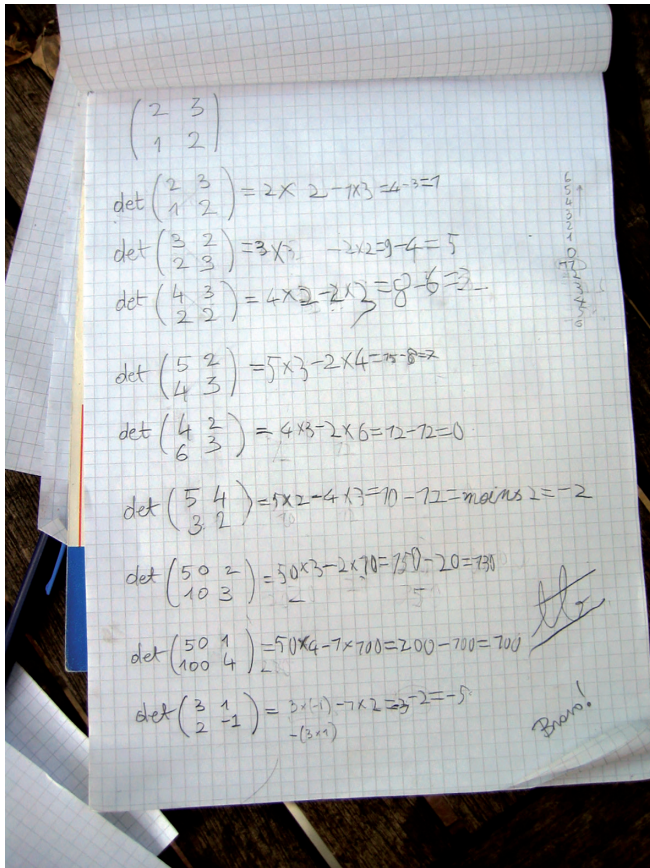 ( 2 3
1 2 )
det ( 2 3
1 2 ) = 2 × 2 - 1 × 3 = 4 - 3 = 1
det ( 3 2
2 3 ) = 3 × 3 - 2 × 2 = 9 - 4 = 5
det ( 4 3
2 2 ) = 4 × 2 - 2 × 3 = 8 - 6 = 2
det ( 5 2
4 3 ) = 5 × 3 - 2 × 4 = 15 - 8 = 7
det ( 4 2
6 3 ) = 4 × 3 - 2 × 6 = 12 - 12 = 0
det ( 5 4
3 2 ) = 5 × 2 - 4 × 3 = 10 - 12 = moins 2 = -2
det ( 50 2
10 3 ) = 50 × 3 - 2 × 10 = 150 - 20 = 130
det ( 50 1
100 4 ) = 50 × 4 - 1 × 100 = 200 - 100 = 100
det ( 3 1
2 -1 ) = 3 × (-1) - 1 × 2 = -3 - 2 = -5
-(3 × 1)
6
5
4
3
2
1
0
2
3
4
5
6
Bravo!